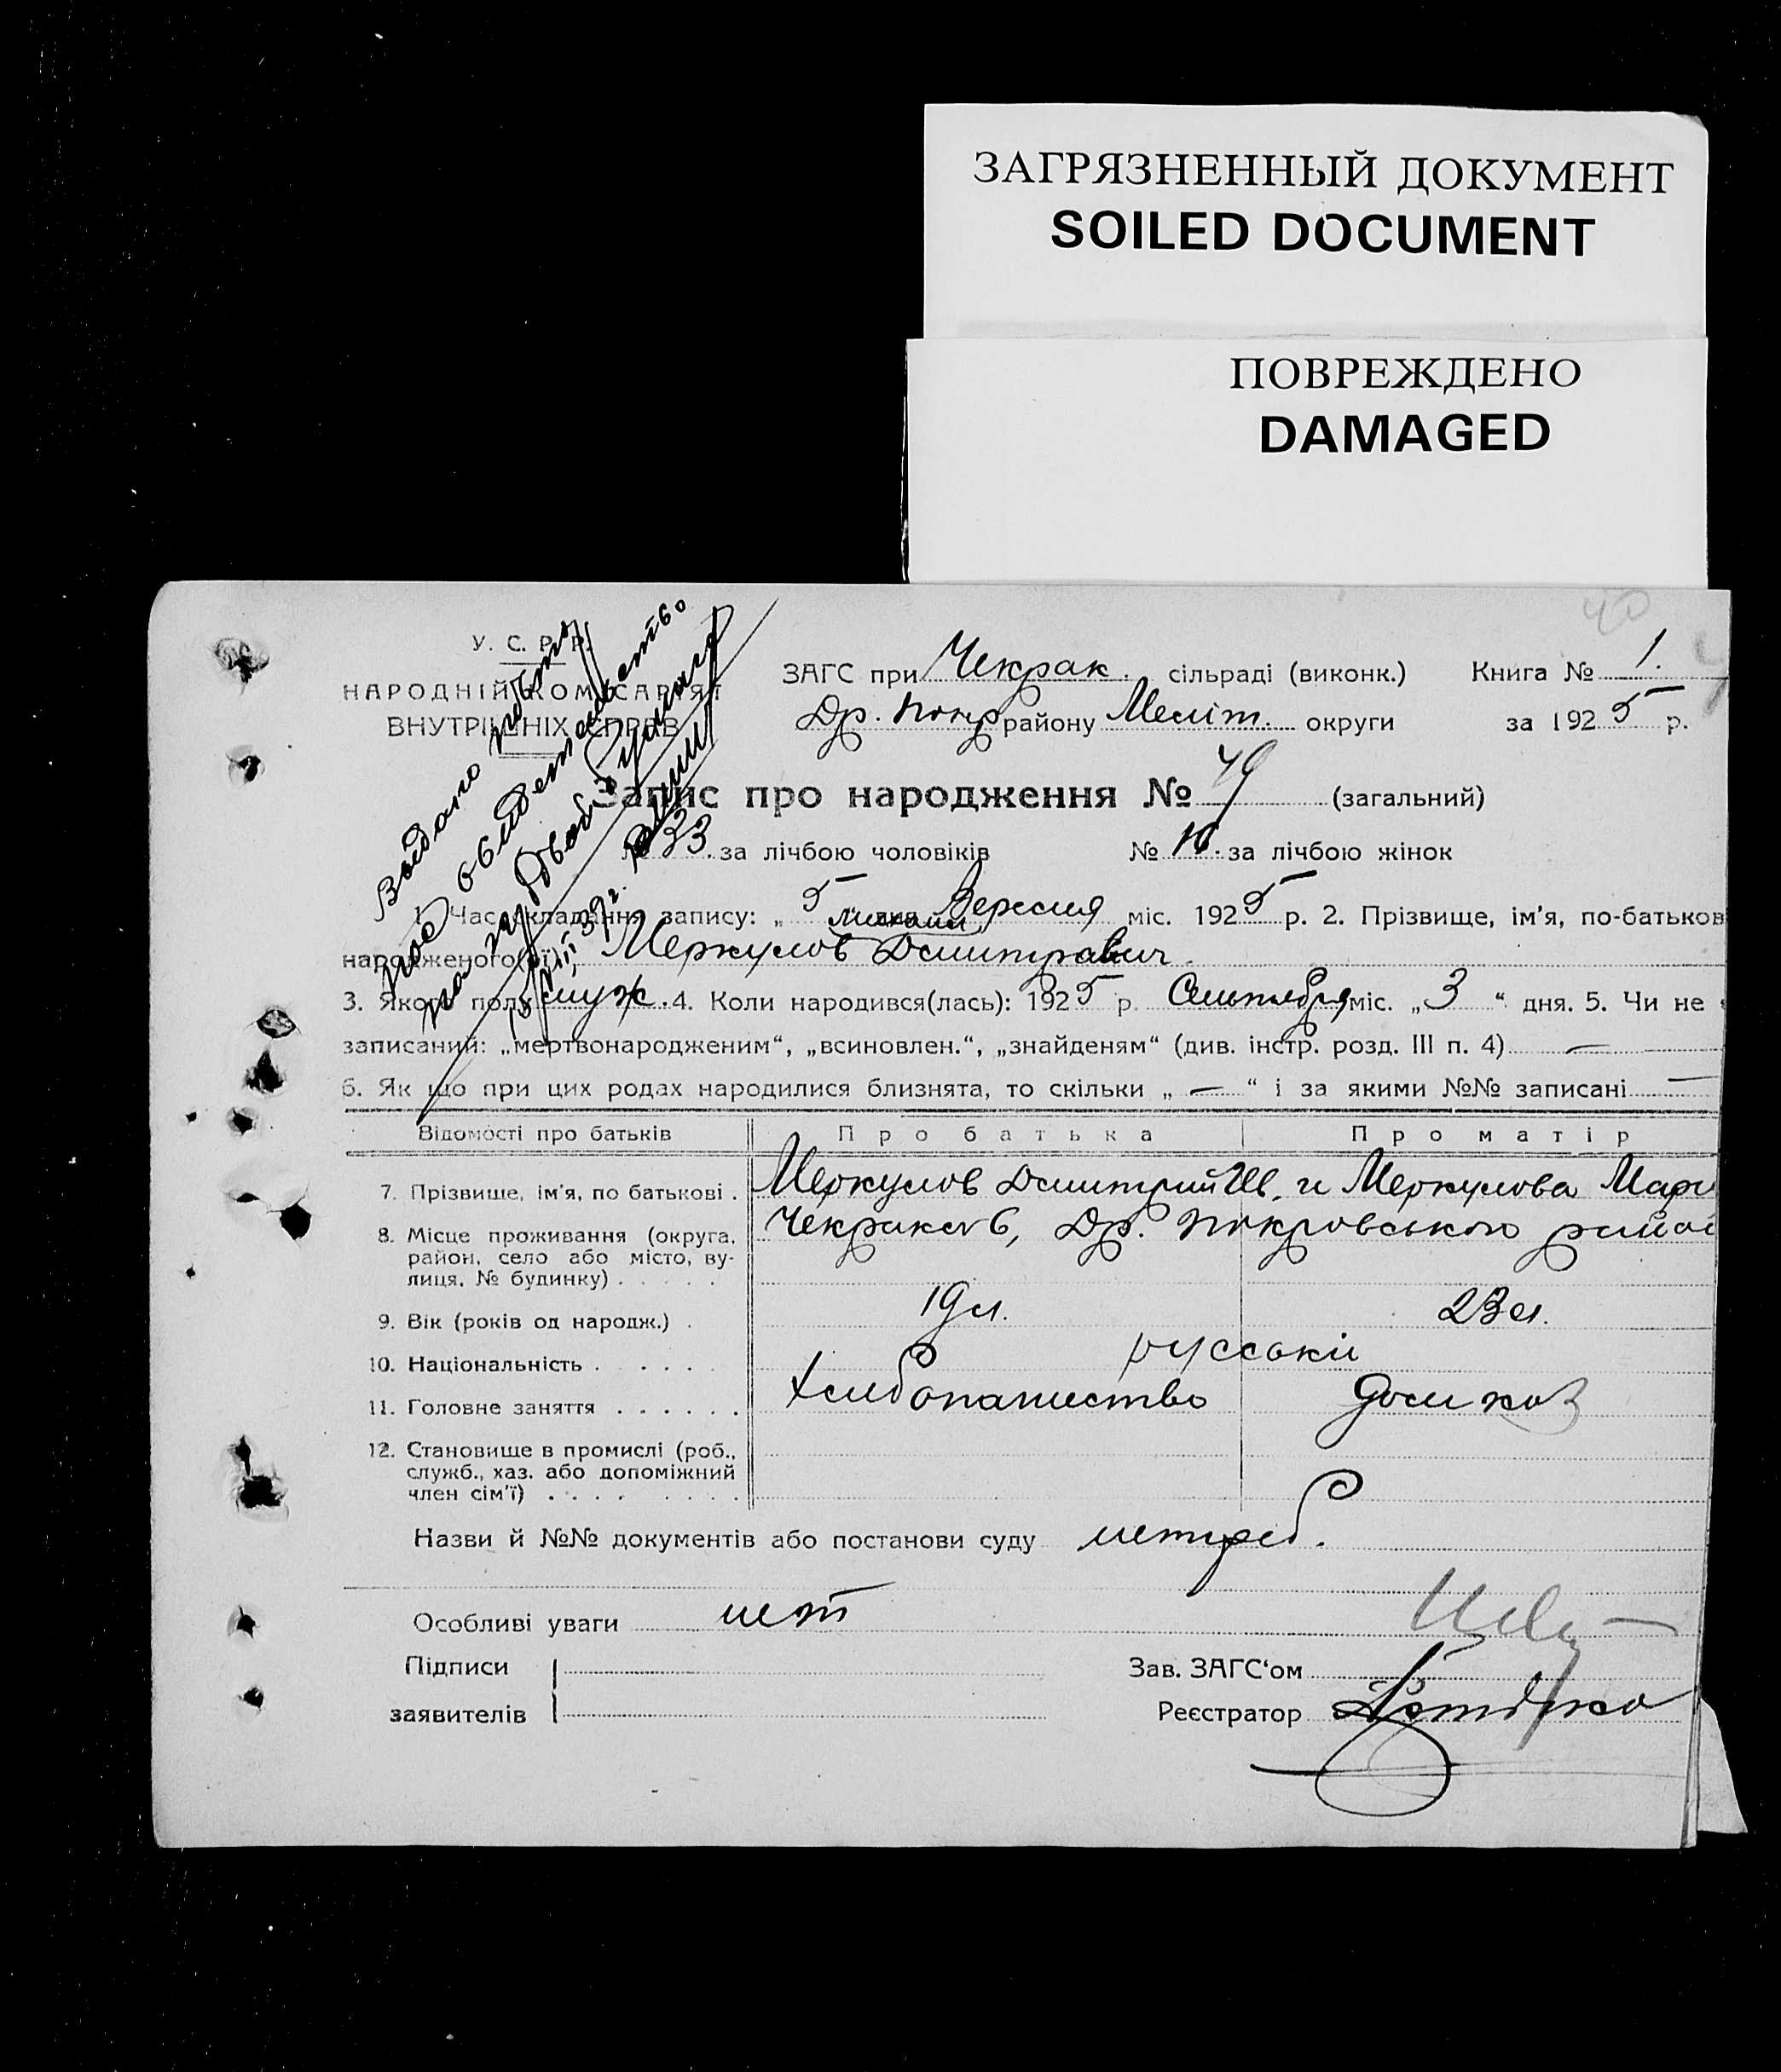 ЗАГРЯЗНЕННЫЙ ДОКУМЕНТ
SOILED DOCUMENT
ПОВРЕЖДЕНО
DAMAGED
У. С. Р. Р.
НАРОДНІЙ КОМІСАРІЯТ
ВНУТРІШНІХ СПРАВ
ЗАГС при Чекрак. сільраді (виконк.) Книга № 1.
Др. Покр району Меліт. округи за 1925 р.
Выдано повтор
ное свидетельство
Запис про народження № 49 (загальний)
№ 33. за лічбою чоловіків № 16. за лічбою жінок
1. Час складання запису: „ 5 “ дня Вересня міс. 1925 р. 2. Прізвище, ім’я, по-батьков
Михаил
народженого(ої): Меркулов Дмитрович.
3. Якого полу муж. 4. Коли народився(лась): 1925 р. Сентября міс. „3“ дня. 5. Чи не
записаний: „мертвонародженим“, „всиновлен.“, „знайденям“ (див. інстр. розд. III п. 4) —
6. Як що при цих родах народилися близнята, то скільки „ — “ і за якими №№ записані —
Відомості про батьків Про батька Про матір
7. Прізвище, ім’я, по батькові . Меркулов Дмитрий Ив. и Меркулова Мари
8. Місце проживання (округа, Др. Покровського райо
район, село або місто, ву-
лиця, № будинку) . . . . .
9. Вік (років од народж.) . 19 л. 23 л.
10. Національність . . . . . . руській
11. Головне заняття . . . . . . Хлебопашество Домхоз
12. Становище в промислі (роб.,
служб., хаз. або допоміжний
член сім’ї) . . . . . . . .
Назви й №№ документів або постанови суду нетреб.
Особливі уваги нет
Підписи Зав. ЗАГС‘ом
заявителів Реєстратор